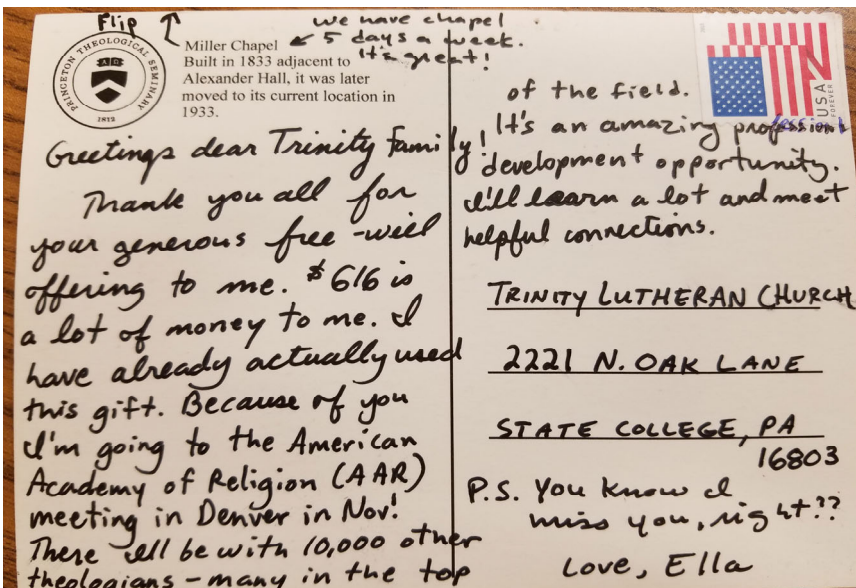 Flip
we have chapel
5 days a week.
It's great!
PRINCETON THEOLOGICAL SEMINARY
1812
Miller Chapel
Built in 1833 adjacent to
Alexander Hall, it was later
moved to its current location in
1933.
Greetings dear Trinity Family!
Thank you all for
your generous free-will
offering to me. $616 is
a lot of money to me. I
have already actually used
this gift. Because of you
I'm going to the American
Academy of Religion (AAR)
meeting in Denver in Nov!
There I'll be with 10,000 other
theologians - many in the top
of the field.
It's an amazing professional
development opportunity.
I'll learn a lot and meet
helpful connections.
USA
FOREVER
TRINITY LUTHERAN CHURCH
2221 N. OAK LANE
STATE COLLEGE, PA
16803
P.S. You know I
miss you, right??
Love, Ella